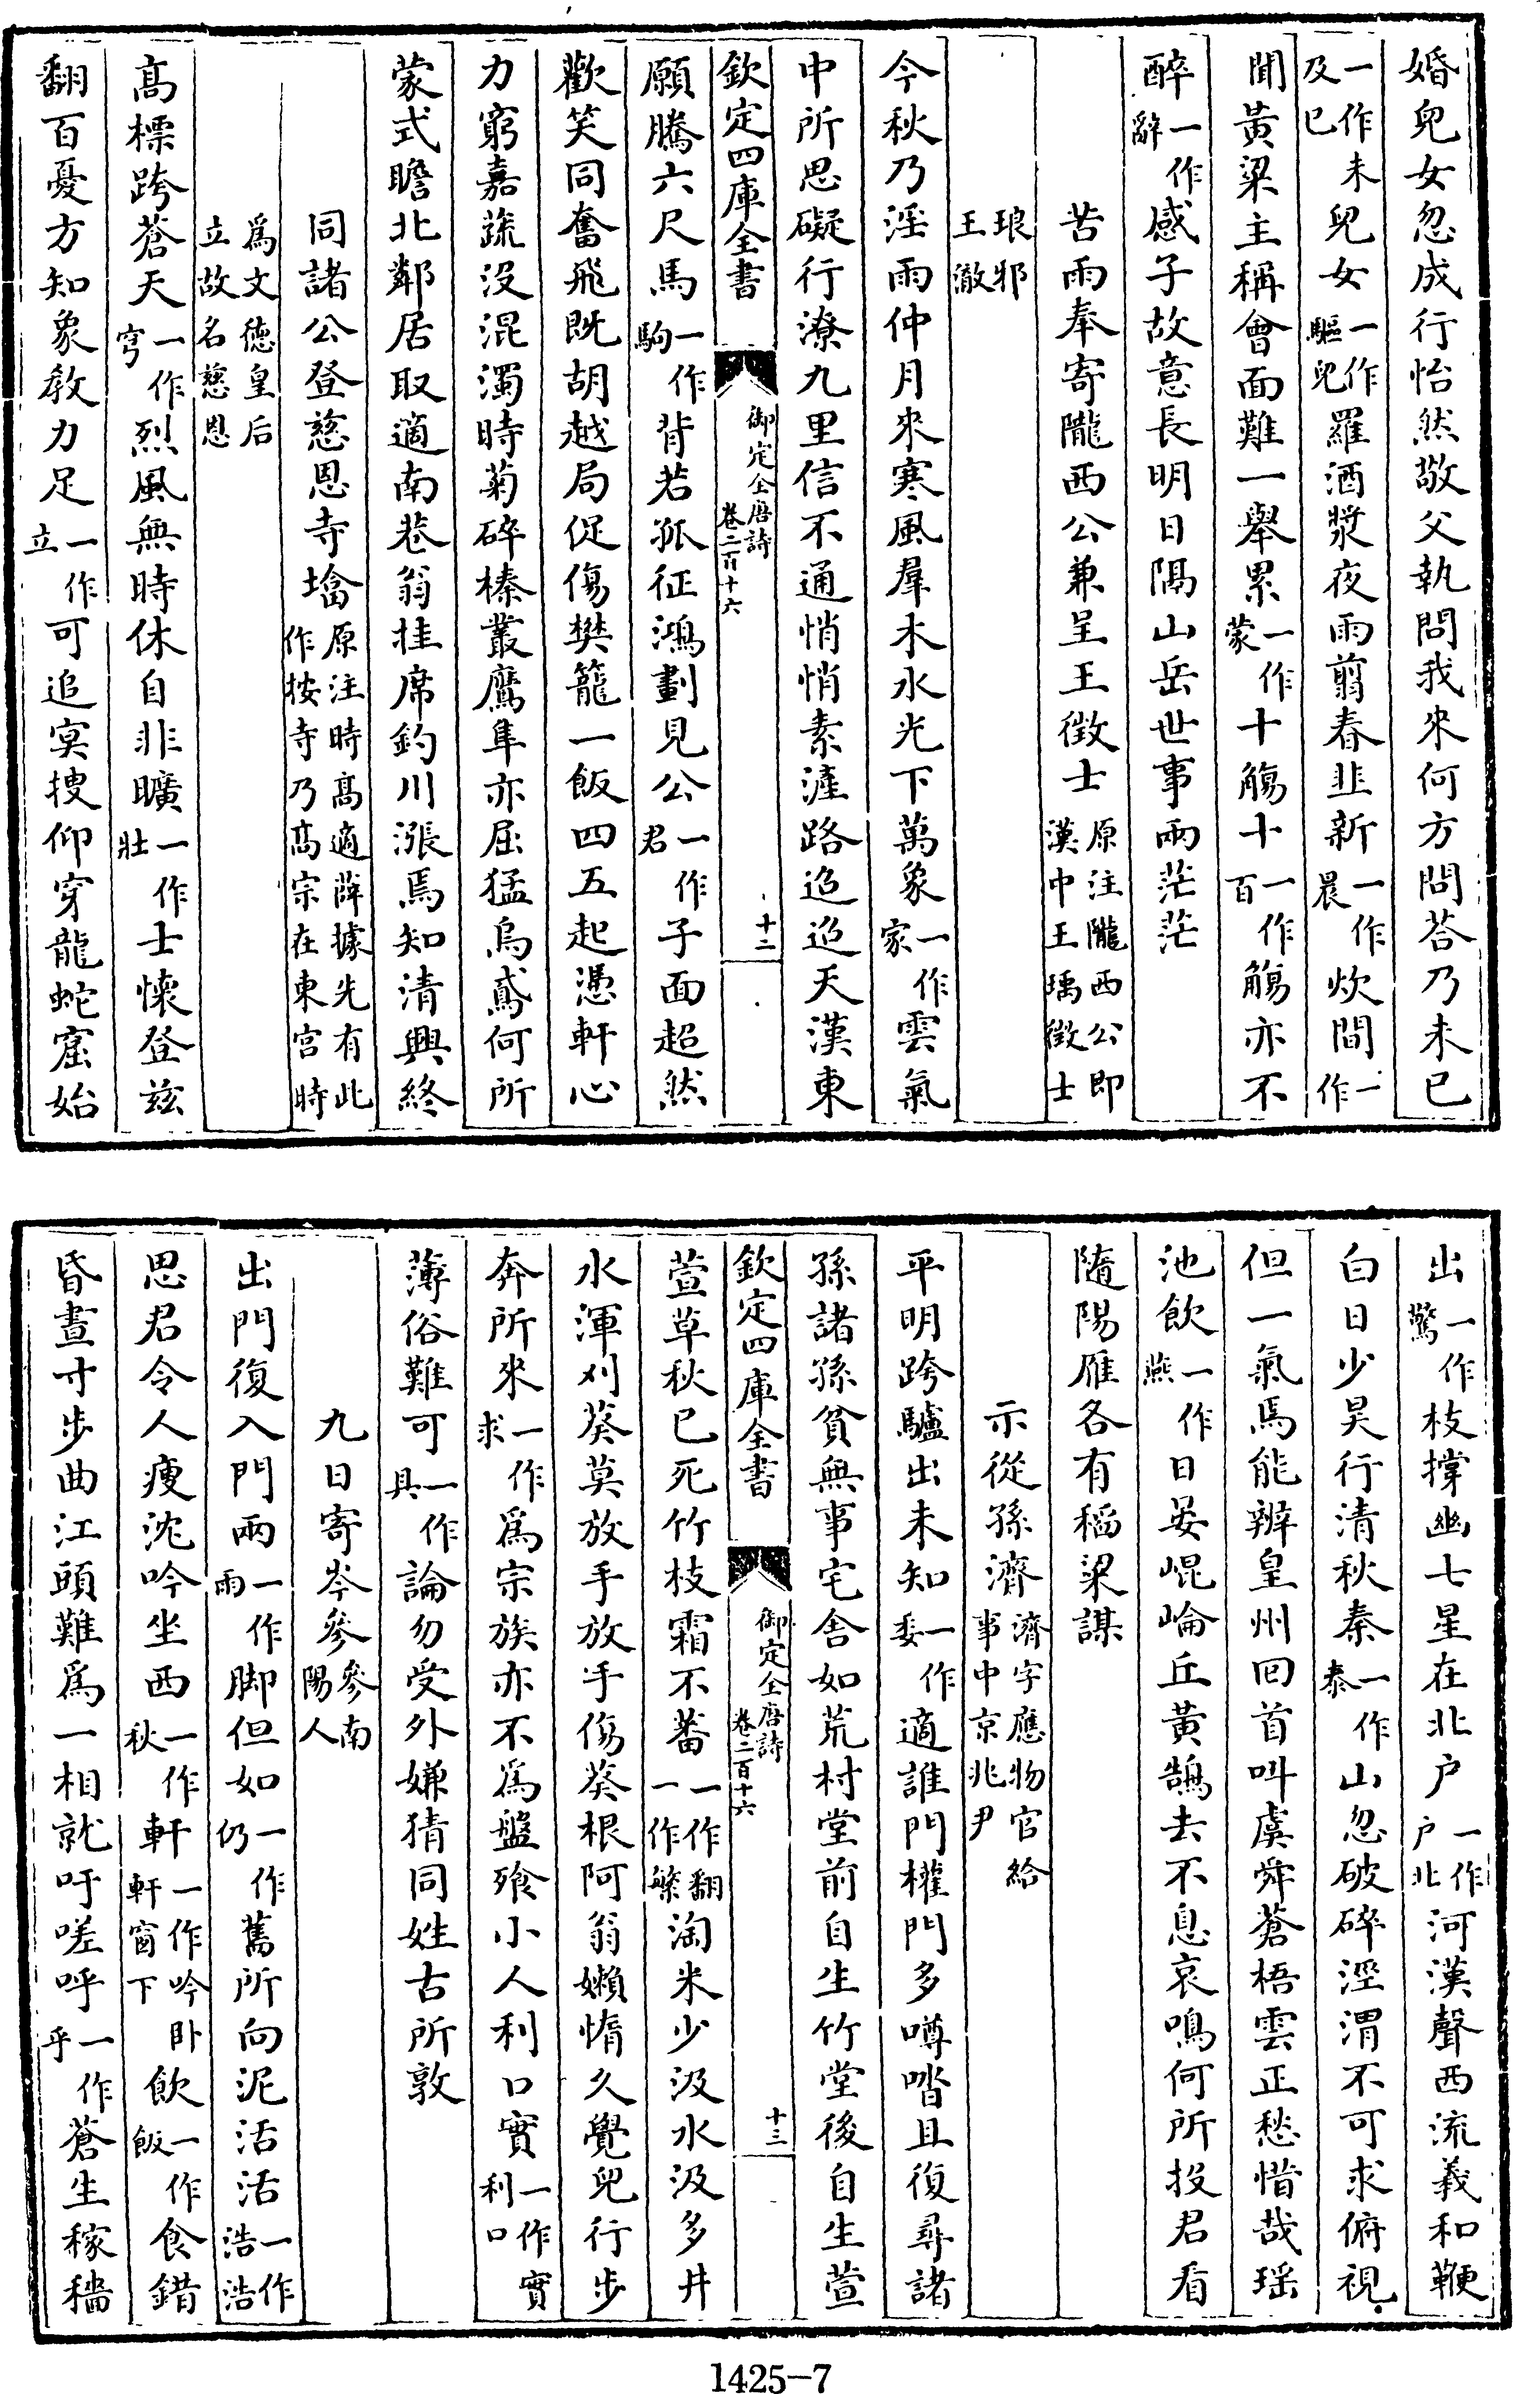 婚兒女忽成行怡然敬父執問我來何方問荅乃未已
一作未及已兒女一作驅兒羅酒漿夜雨翦春韭新一作晨炊間一作
聞黃粱主稱會面難一舉累一作蒙十觴十一作百觴亦不
醉一作辭感子故意長明日隔山岳世事兩茫茫
苦雨奉寄隴西公兼呈王徵士原注隴西公即漢中王瑀徵士
琅邪王澈
今秋乃淫雨仲月來寒風羣木水光下萬象一作家雲氣
中所思礙行潦九里信不通悄悄素滻路迢迢天漢東
欽定四庫全書 御定全唐詩 卷二百十六 十二
願騰六尺馬一作駒背若孤征鴻劃見公一作君子面超然
歡笑同奮飛既胡越局促傷樊籠一飯四五起憑軒心
力窮嘉蔬沒混濁時菊碎榛叢鷹隼亦屈猛烏鳶何所
蒙式瞻北鄰居取適南巷翁挂席釣川漲焉知清興終
同諸公登慈恩寺墖原注時高適薛據先有此作按寺乃高宗在東宮時
爲文德皇后立故名慈恩
高標跨蒼天一作穹烈風無時休自非曠一作壯士懷登茲
翻百憂方知象教力足一作立可追冥搜仰穿龍蛇窟始
出一作驚枝撐幽七星在北戶一作戶北河漢聲西流義和鞭
白日少昊行清秋秦一作泰山忽破碎涇渭不可求俯視
但一氣焉能辨皇州回首叫虞舜蒼梧雲正愁惜哉瑤
池飲一作燕日晏崐崘丘黃鵠去不息哀鳴何所投君看
隨陽雁各有稻粱謀
示從孫濟濟字應物官給事中京兆尹
平明跨驢出未知一作委適誰門權門多噂㳫且復尋諸
孫諸孫貧無事宅舍如荒村堂前自生竹堂後自生萱
欽定四庫全書 御定全唐詩 卷二百十六 十三
萱草秋已死竹枝霜不蕃一作翻一作繁淘米少汲水汲多井
水渾刈葵莫放手放手傷葵根阿翁嬾惰久覺兒行步
奔所來一作求爲宗族亦不爲盤飱小人利口實一作實利口
薄俗難可一作具論勿受外嫌猜同姓古所敦
九日寄岑參參南陽人
出門復入門兩一作雨脚但如一作仍舊所向泥活活一作浩浩
思君令人瘦沈吟坐西一作秋軒一作吟臥軒窗下飲一作飯食錯
昏晝寸步曲江頭難爲一相就吁嗟呼一作乎蒼生稼穡
1425-7